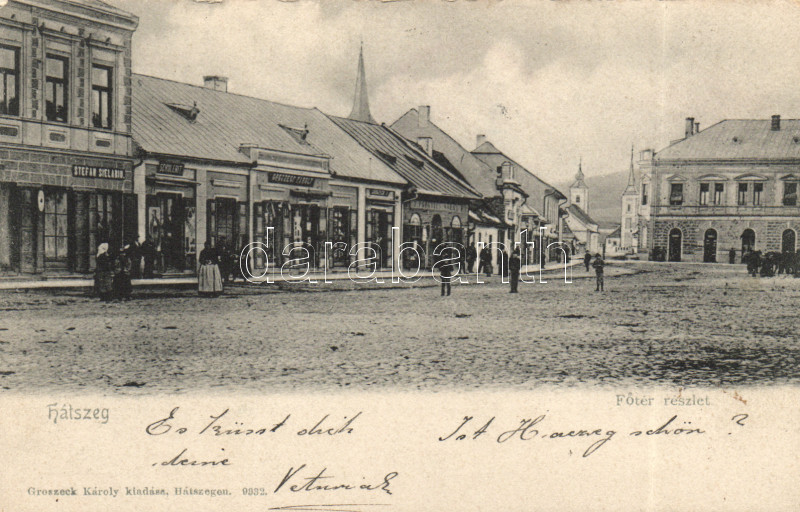 STEFAN SIELABIN
darabanth.com
Hátszeg
Főtér részlet
Es küsst dich Ist Haczeg schön?
deine
Groszeck Károly kiadása, Hátszegen. 9332.